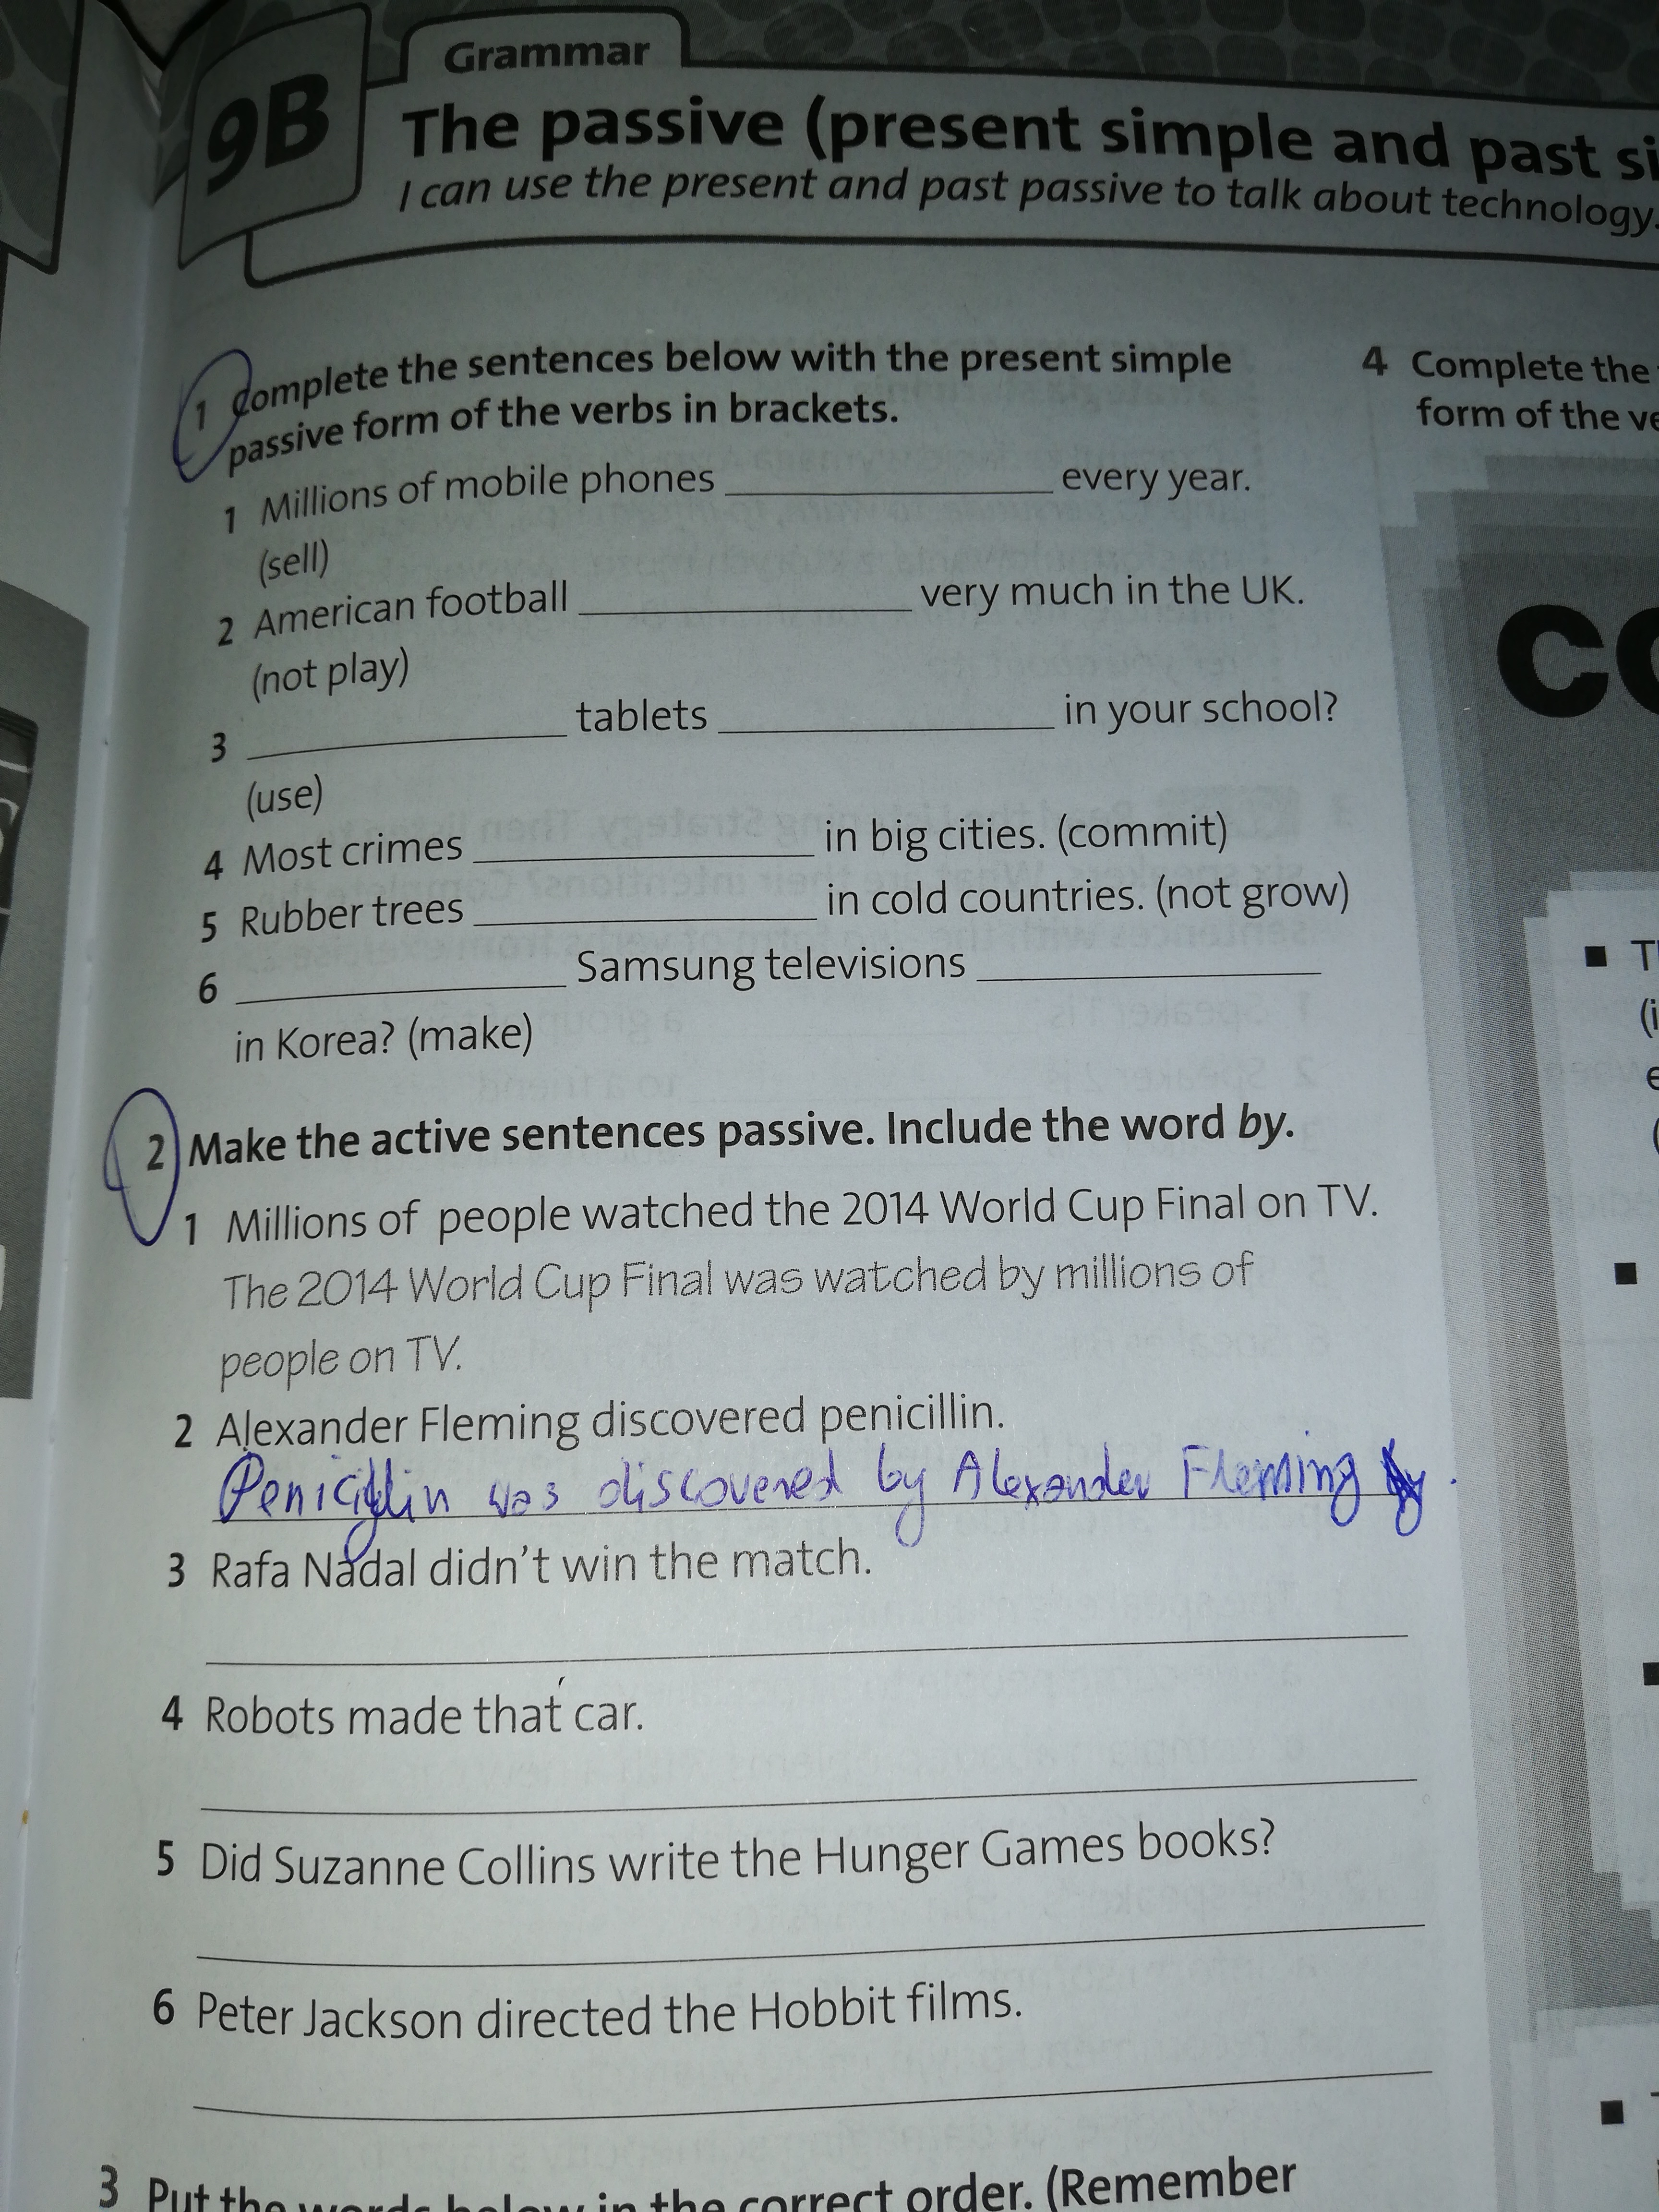 Grammar
9B
The passive (present simple and past si
I can use the present and past passive to talk about technology.
1 Complete the sentences below with the present simple
passive form of the verbs in brackets.
1 Millions of mobile phones ____________ every year.
(sell)
2 American football ____________ very much in the UK.
(not play)
3 ____________ tablets ____________ in your school?
(use)
4 Most crimes ____________ in big cities. (commit)
5 Rubber trees ____________ in cold countries. (not grow)
6 ____________ Samsung televisions ____________
in Korea? (make)
2 Make the active sentences passive. Include the word by.
1 Millions of people watched the 2014 World Cup Final on TV.
The 2014 World Cup Final was watched by millions of
people on TV.
2 Alexander Fleming discovered penicillin.
Penicillin was discovered by Alexander Fleming
3 Rafa Nadal didn't win the match.
4 Robots made that car.
5 Did Suzanne Collins write the Hunger Games books?
6 Peter Jackson directed the Hobbit films.
3 Put the words below in the correct order. (Remember
4 Complete the
form of the ve
CO